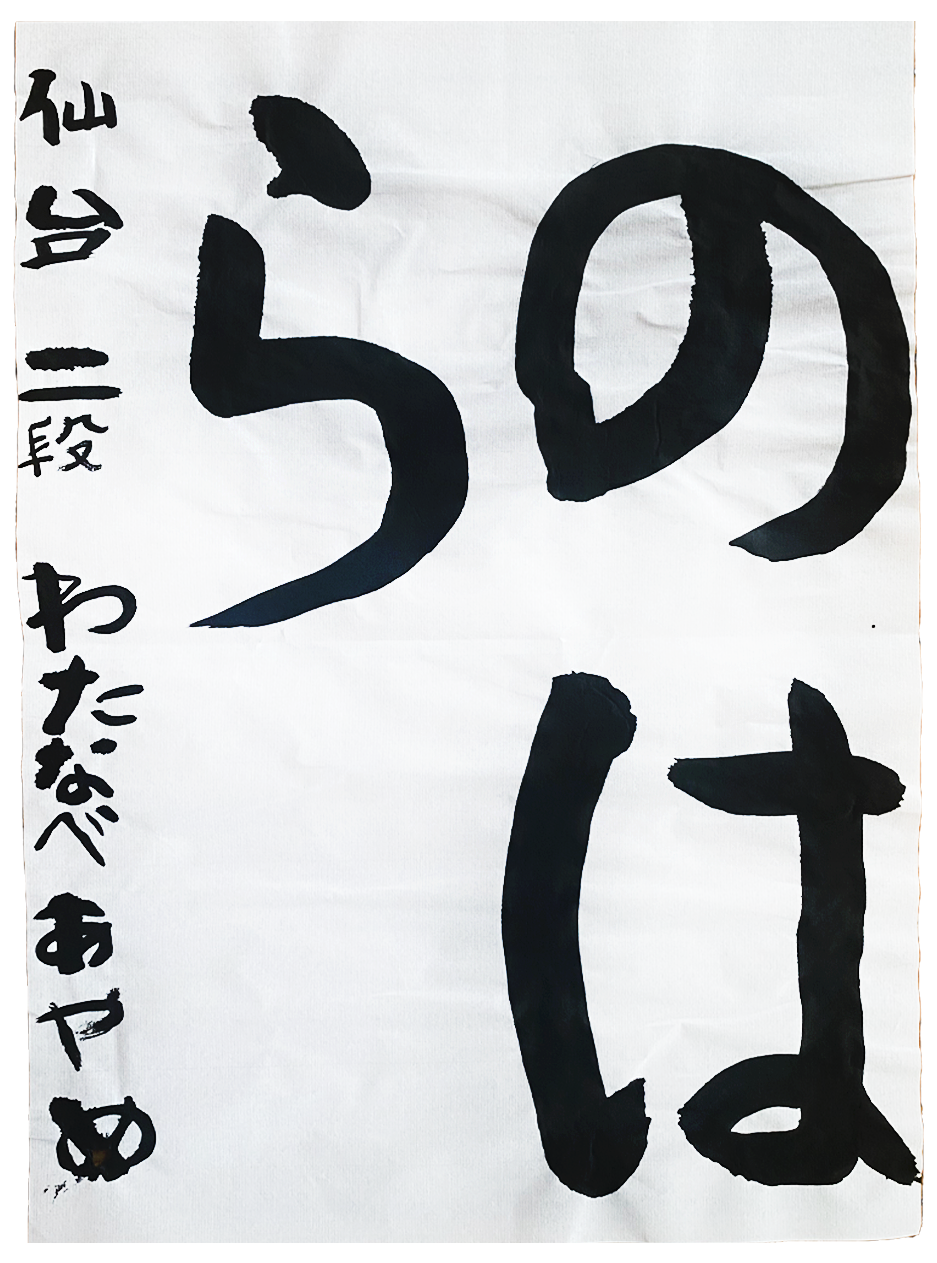 のは
ら
仙台 二段 わたなべ あやめ